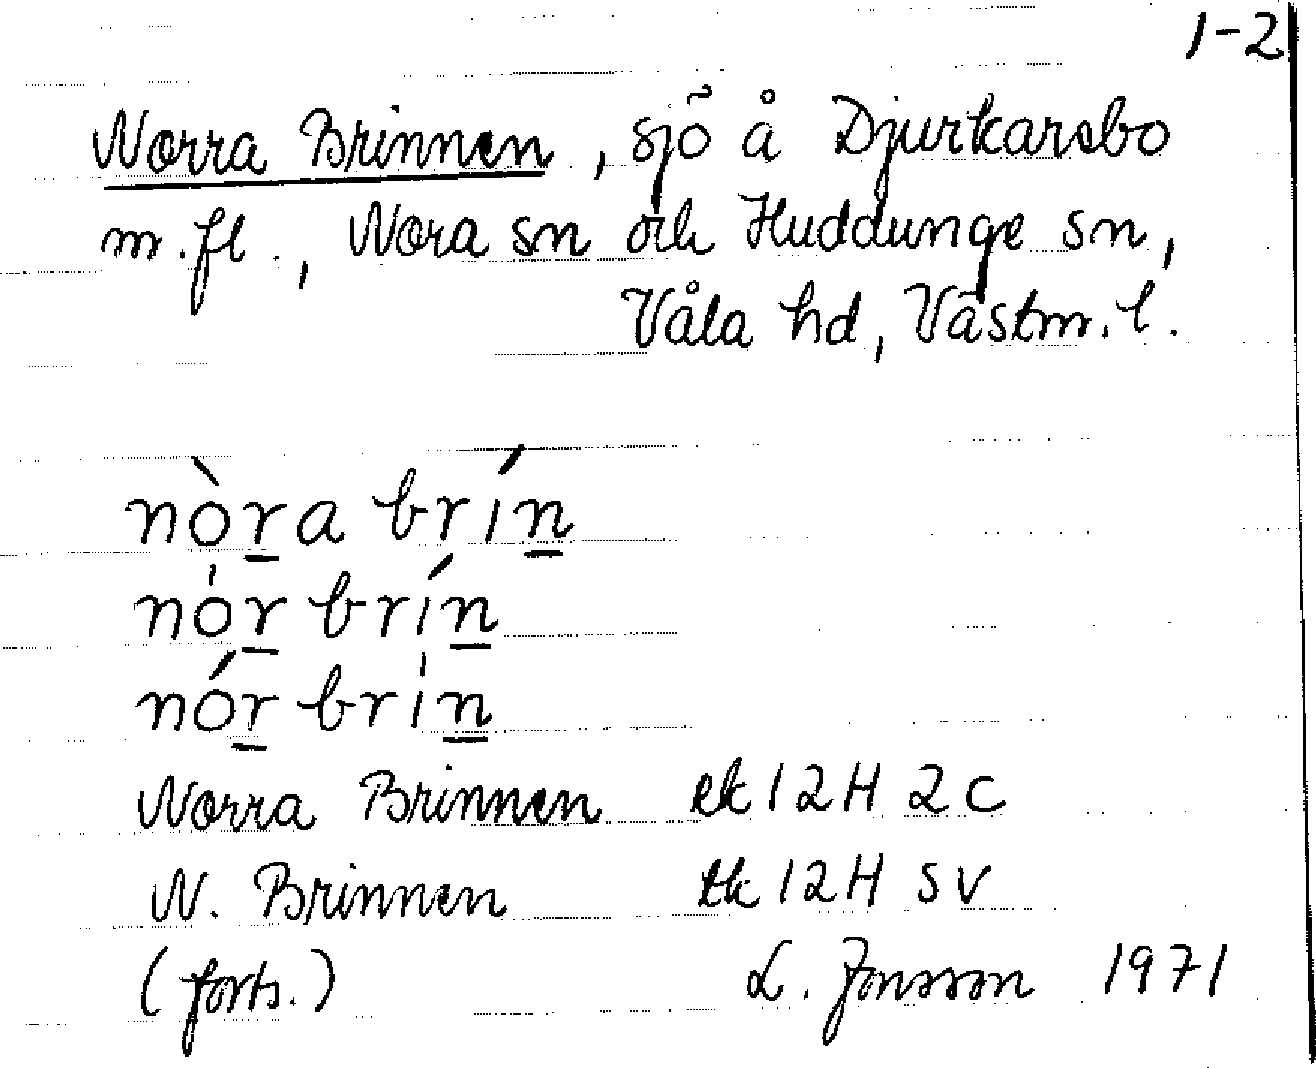 1-2
Norra Brinnen, sjö å Djurkarsbo
m.fl., Nora sn och Huddunge sn,
Våla hd, Västm. l.
nòr̲a brín̲
nò̍r̲ brín̲
nór̲ bri̍n̲
Norra Brinnen ek 12H 2c
N. Brinnen tk 12H SV
(forts.) L. Jonsson 1971